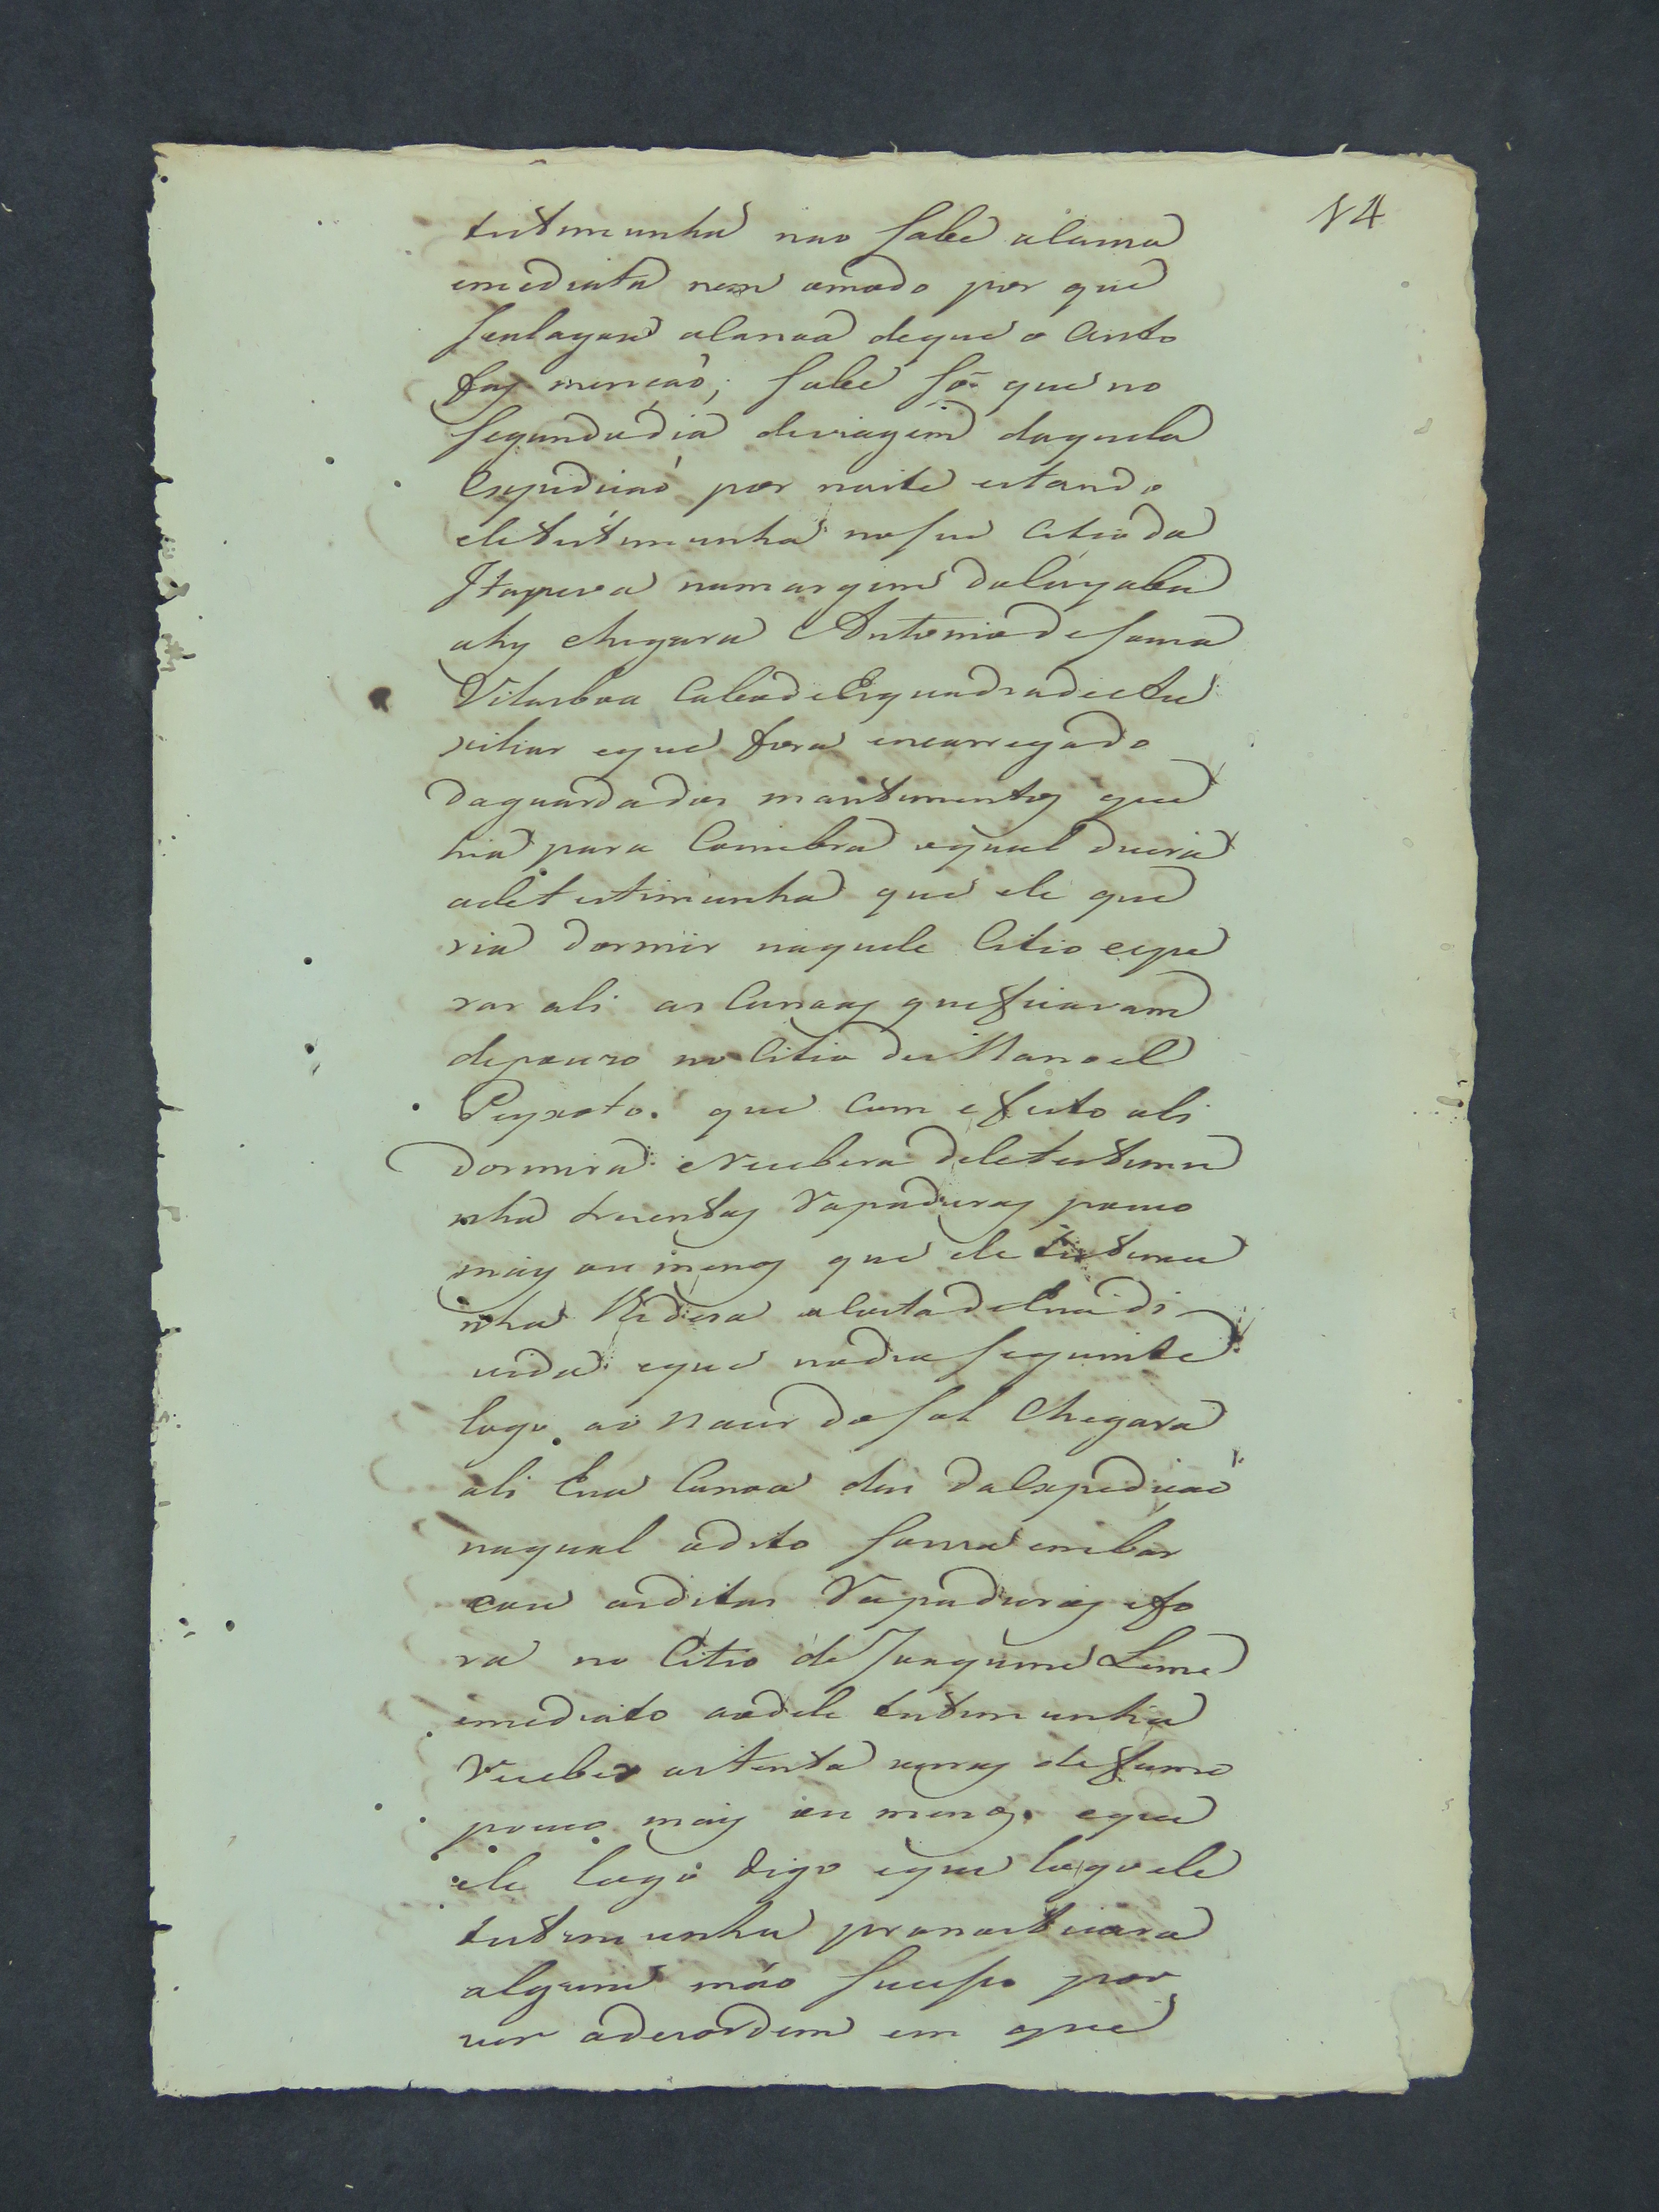 14
testemunha nao Sabe alcauza
imediata nem omodo por que
Sealagou alanoa deque o auto
faz mençaõ; Sabe Só que no
Segundodia deviagem daquela
Expediçaõ por noite estando
eletestemunha noseu Citio da
Itapeva namargem doCuyaba
ahy chegara Antonio de Souza
Vilasboa CabodeEsquadradeAu
xiliar eque fora encarregado
daguardados mantimentos que
hia para Coimbra oqual dicera
aeletestimunha que ele que
ria dormir naquele Citio eespe
rar ali as Canoas queficavam
depouzo no Citio de Manoel
Peyxoto. que com efeito ali
dormira e recebera deletestemu
nha duzentas Rapaduras pouco
mais ou menos que ele testemu
nha Vendera acontadehuã di
vida eque nodia Seguinte
logo ao nacer do Sol Chegara
ali hua Canoa das daExpediçaõ
naqual odito Souza embar
cou asditas Rapaduras efo
ra no Citio de Joaquim Leme
imediato aodele testemunha
Receber oitenta varas defumo
pouco mais ou menos. eque
ele logo digo eque logo ele
testemunha pronosticara
algum máo Sucesso por
ver adezordem em que